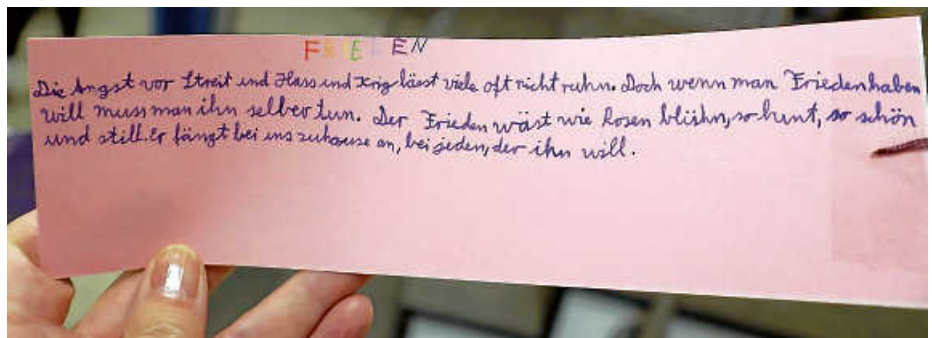 FRIEDEN
Die Angst vor Streit und Hass und Krig lässt viele oft nicht ruhn. Doch wenn man Frieden haben
will muss man ihn selber tun. Der Frieden wäst wie Rosen blühn, so bunt, so schön
und still. Er fängt bei uns zuhause an, bei jeden, der ihn will.